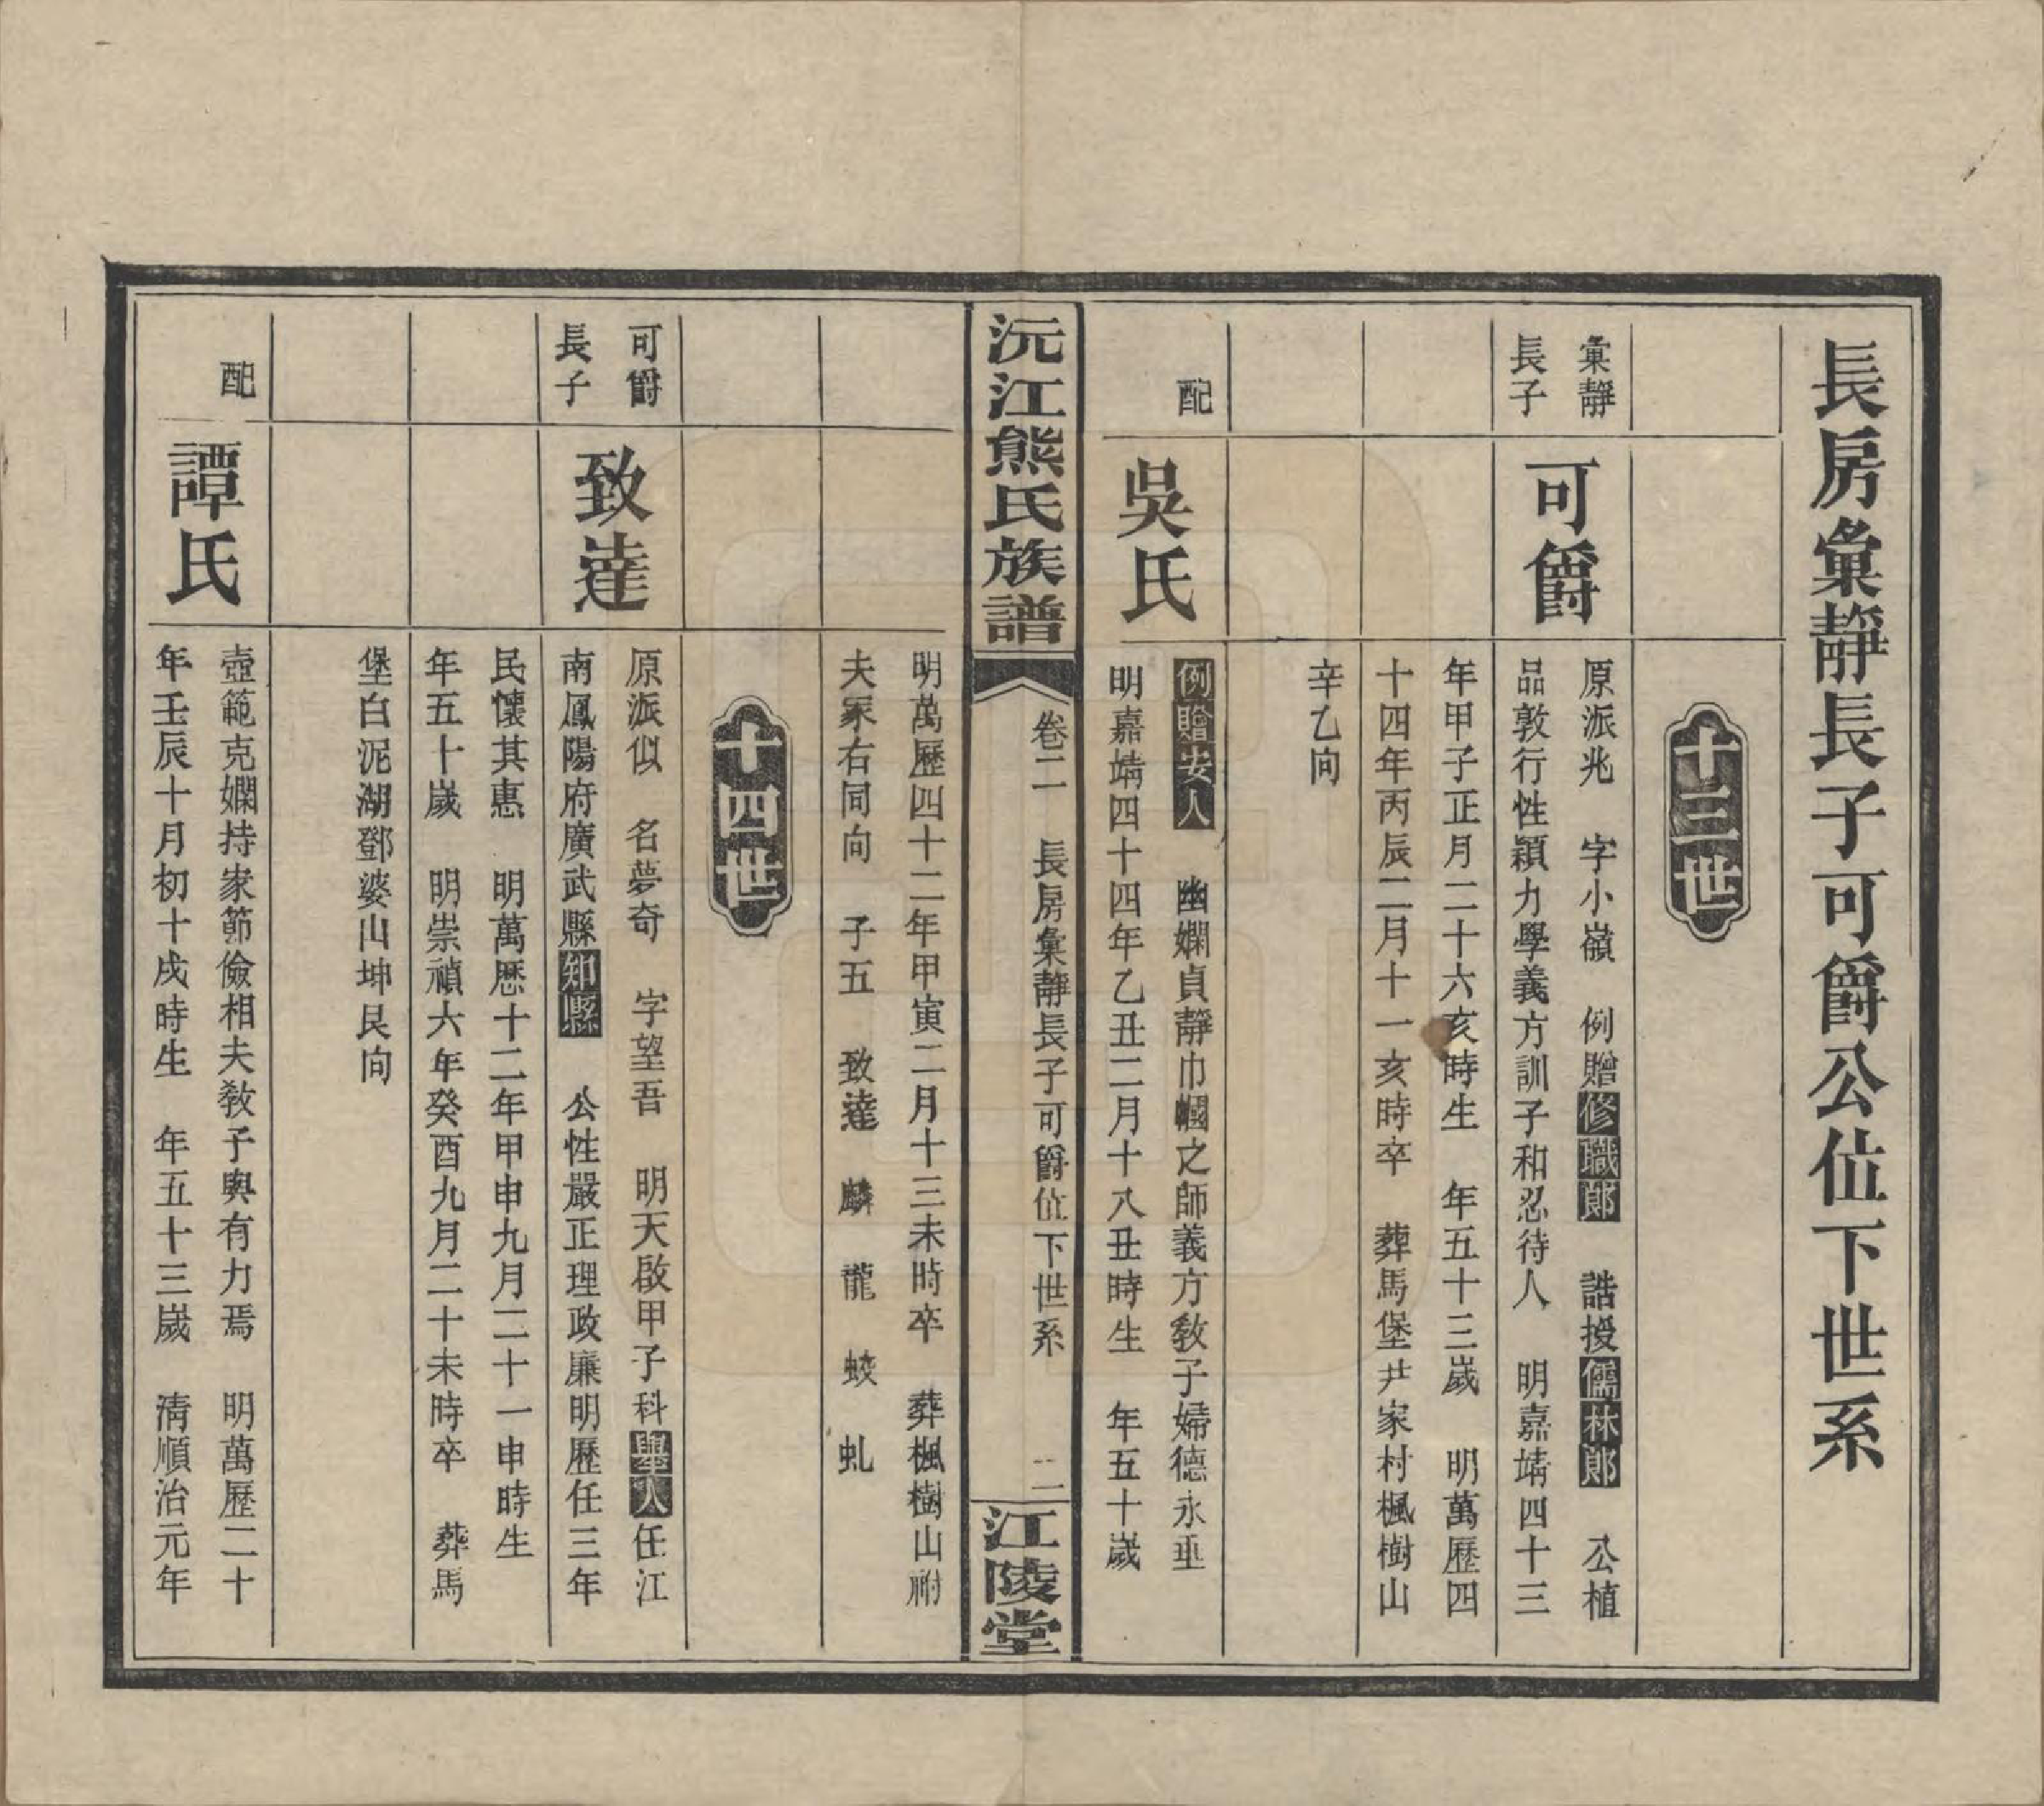 長房彙靜長子可爵公位下世系
十三世
彙靜
長子
可爵
原派兆　字小嶺　例贈修職郎　誥授儒林郎　公植
品敦行性穎力學義方訓子和忍待人　明嘉靖四十三
年甲子正月二十六亥時生　年五十三歲　明萬歷四
十四年丙辰二月十一亥時卒　葬馬堡尹家村楓樹山
辛乙向
配
吳氏
例贈安人　幽嫻貞靜巾幗之師義方教子婦德永垂
明嘉靖四十四年乙丑二月十八丑時生　年五十歲
沅江熊氏族譜
卷二　長房彙靜長子可爵位下世系
二
江陵堂
明萬歷四十二年甲寅二月十三未時卒　葬楓樹山祔
夫冢右同向　子五　致達　麟　龍　蛟　虬
十四世
可爵
長子
致達
原派似　名夢奇　字望吾　明天啟甲子科舉人任江
南鳳陽府廣武縣知縣　公性嚴正理政廉明歷任三年
民懷其惠　明萬歷十二年甲申九月二十一申時生
年五十歲　明崇禎六年癸酉九月二十未時卒　葬馬
堡白泥湖鄧婆山坤艮向
配
譚氏
壺範克嫻持家節儉相夫教子與有力焉　明萬歷二十
年壬辰十月初十戌時生　年五十三歲　清順治元年